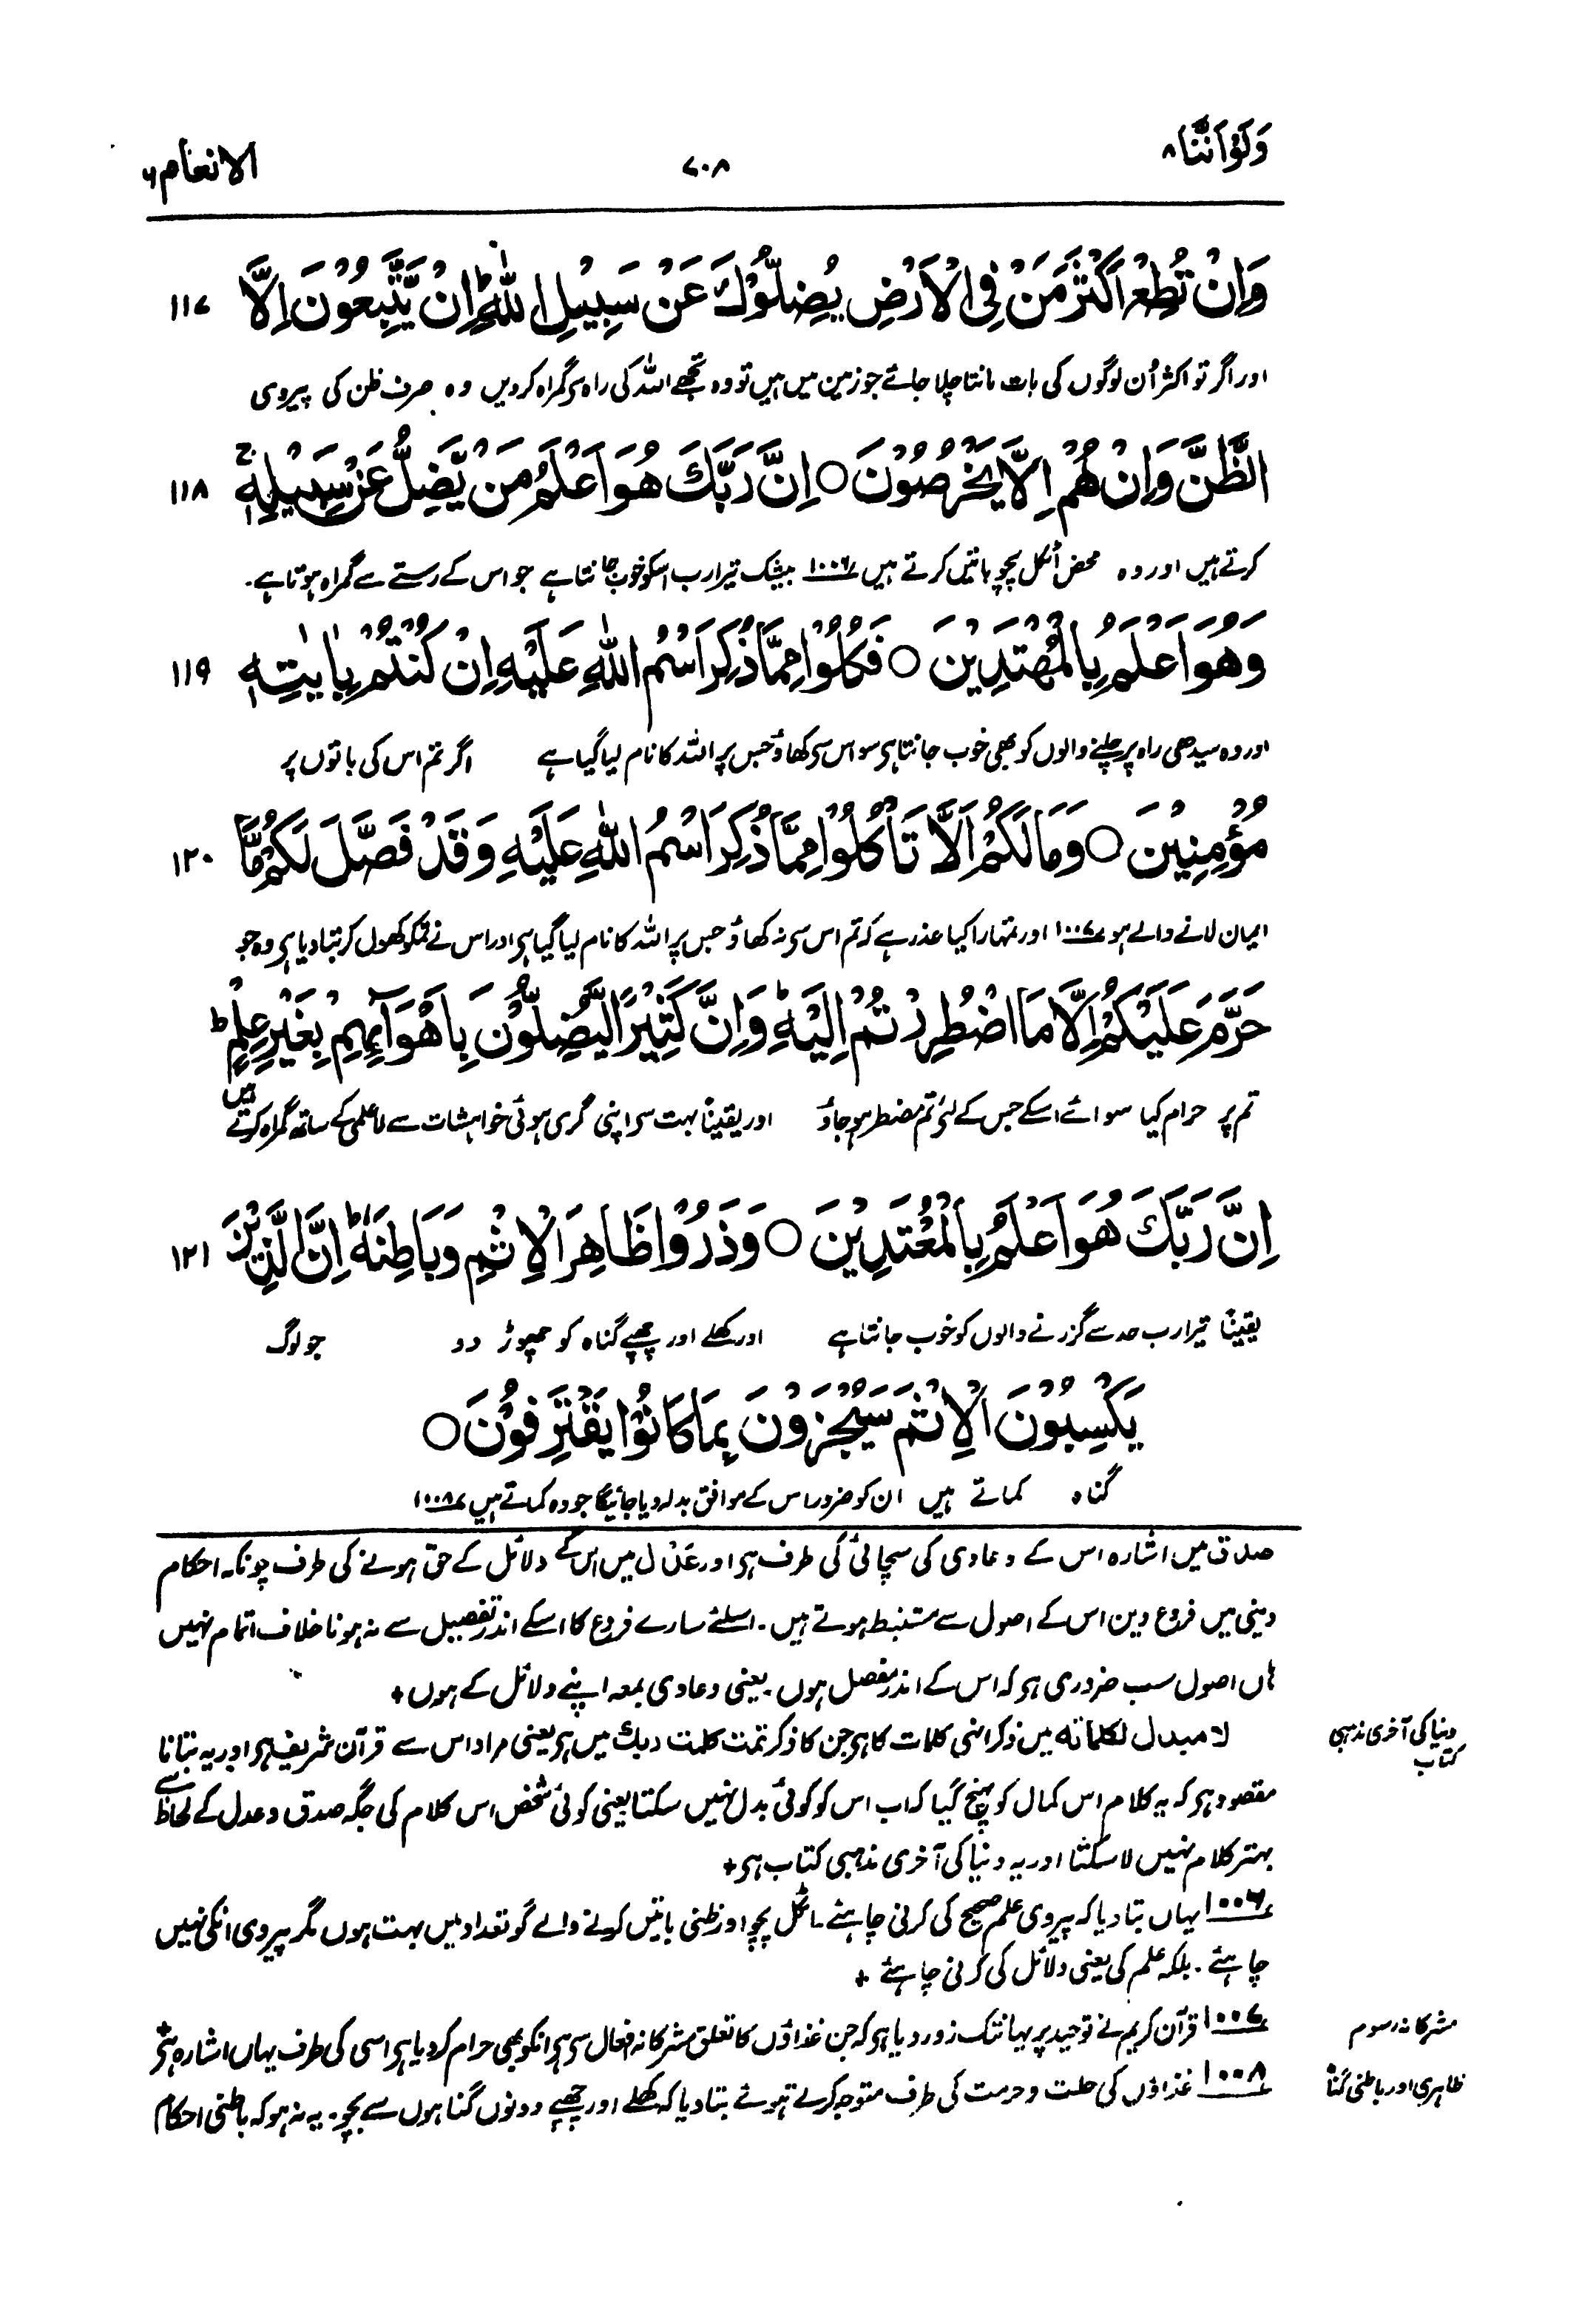 وَلَوْاَنَّنَا ۸
۷۰۸
الانعام ۶
وَاِنْ تُطِعْ اَكْثَرَ مَنْ فِى الْاَرْضِ يُضِلُّوْكَ عَنْ سَبِيْلِ اللّٰهِ ؕ اِنْ يَّتَّبِعُوْنَ اِلَّا ۱۱۷
اور اگر تو اکثر اُن لوگوں کی بات مانتا چلا جائے جو زمین میں ہیں تو وہ تجھے اللہ کی راہ سے گمراہ کردیں وہ صرف ظن کی پیروی
الظَّنَّ وَاِنْ هُمْ اِلَّا يَخْرُصُوْنَ ○ اِنَّ رَبَّكَ هُوَ اَعْلَمُ مَنْ يَّضِلُّ عَنْ سَبِيْلِهٖ ۚ ۱۱۸
کرتے ہیں اور وہ محض اٹکل پچو باتیں کرتے ہیں ۱۰۰۶ بیشک تیرا رب اسکو خوب جانتا ہے جو اس کے رستے سے گمراہ ہوتا ہے۔
وَهُوَ اَعْلَمُ بِالْمُهْتَدِيْنَ ○ فَكُلُوْا مِمَّا ذُكِرَ اسْمُ اللّٰهِ عَلَيْهِ اِنْ كُنْتُمْ بِاٰيٰتِهٖ ۱۱۹
اور وہ سیدھی راہ پر چلنے والوں کو بھی خوب جانتا ہی سو اس سی کھاؤ جس پر اللہ کا نام لیا گیا ہے اگر تم اس کی باتوں پر
مُؤْمِنِيْنَ ○ وَمَا لَكُمْ اَلَّا تَاْكُلُوْا مِمَّا ذُكِرَ اسْمُ اللّٰهِ عَلَيْهِ وَقَدْ فَصَّلَ لَكُمْ مَّا ۱۲۰
ایمان لانے والے ہو ۱۰۰۷ اور تمہارا کیا عذر ہے کہ تم اس سی نہ کھاؤ جس پر اللہ کا نام لیا گیا ہی اور اس نے تمکو کھول کر بتا دیا ہی وہ جو
حَرَّمَ عَلَيْكُمْ اِلَّا مَا اضْطُرِرْتُمْ اِلَيْهِ ؕ وَاِنَّ كَثِيْرًا لَّيُضِلُّوْنَ بِاَهْوَآىِٕهِمْ بِغَيْرِ عِلْمٍ ؕ
تم پر حرام کیا سوائے اسکے جس کے لئے تم مضطر ہو جاؤ اور یقیناً بہت سی اپنی گری ہوئی خواہشات سے لاعلمی کے ساتھ گمراہ کرتے ہیں
اِنَّ رَبَّكَ هُوَ اَعْلَمُ بِالْمُعْتَدِيْنَ ○ وَذَرُوْا ظَاهِرَ الْاِثْمِ وَبَاطِنَهٗ ؕ اِنَّ الَّذِيْنَ ۱۲۱
یقیناً تیرا رب حد سے گزرنے والوں کو خوب جانتا ہے اور کھلے اور چھپے گناہ کو چھوڑ دو جو لوگ
يَكْسِبُوْنَ الْاِثْمَ سَيُجْزَوْنَ بِمَا كَانُوْا يَقْتَرِفُوْنَ ○
گناہ کماتے ہیں ان کو ضرور اس کے موافق بدلہ دیا جائیگا جو وہ کماتے ہیں ۱۰۰۸
صدق میں اشارہ اس کے دعاوی کی سچائی کی طرف ہی اور عدل میں اس کے دلائل کے حق ہونے کی طرف چونکہ احکام
دینی میں فروع دین اس کے اصول سے مستنبط ہوتے ہیں۔ اسلئے سارے فروع کا اسکے اندر تفصیل سے نہ ہونا خلاف اتمام نہیں
ہاں اصول سب ضروری ہی کہ اس کے اندر مفصل ہوں۔ یعنی دعاوی بمعہ اپنے دلائل کے ہوں +
لا مبدل لکلماته میں ذکر انہی کلمات کا ہی جن کا ذکر تمت کلمت ربك میں ہی یعنی مراد اس سے قرآن شریف ہی اور یہ بتانا
دنیا کی آخری مذہبی کتاب
مقصود ہی کہ یہ کلام اس کمال کو پہنچ گیا کہ اب اس کو کوئی بدل نہیں سکتا یعنی کوئی شخص اس کلام کی جگہ صدق و عدل کے لحاظ سے
بہتر کلام نہیں لا سکتا اور یہ دنیا کی آخری مذہبی کتاب ہی +
۱۰۰۶ یہاں بتا دیا کہ پیروی علم صحیح کی کرنی چاہئے۔ اٹکل پچو اور ظنی باتیں کرنے والے گو تعداد میں بہت ہوں مگر پیروی انکی نہیں
چاہئے۔ بلکہ علم کی یعنی دلائل کی کرنی چاہئے +
۱۰۰۷ قرآن کریم نے توحید پر یہانتک زور دیا ہی کہ جن غذاؤں کا تعلق مشرکانہ افعال سی ہی انکو بھی حرام کر دیا ہی اسی کی طرف یہاں اشارہ ہی +
مشرکانہ رسوم
۱۰۰۸ غذاؤں کی حلت و حرمت کی طرف متوجہ کرتے ہوئے بتا دیا کہ کھلے اور چھپے دونوں گناہوں سے بچو۔ یہ نہ ہو کہ باطنی احکام
ظاہری اور باطنی گناہ